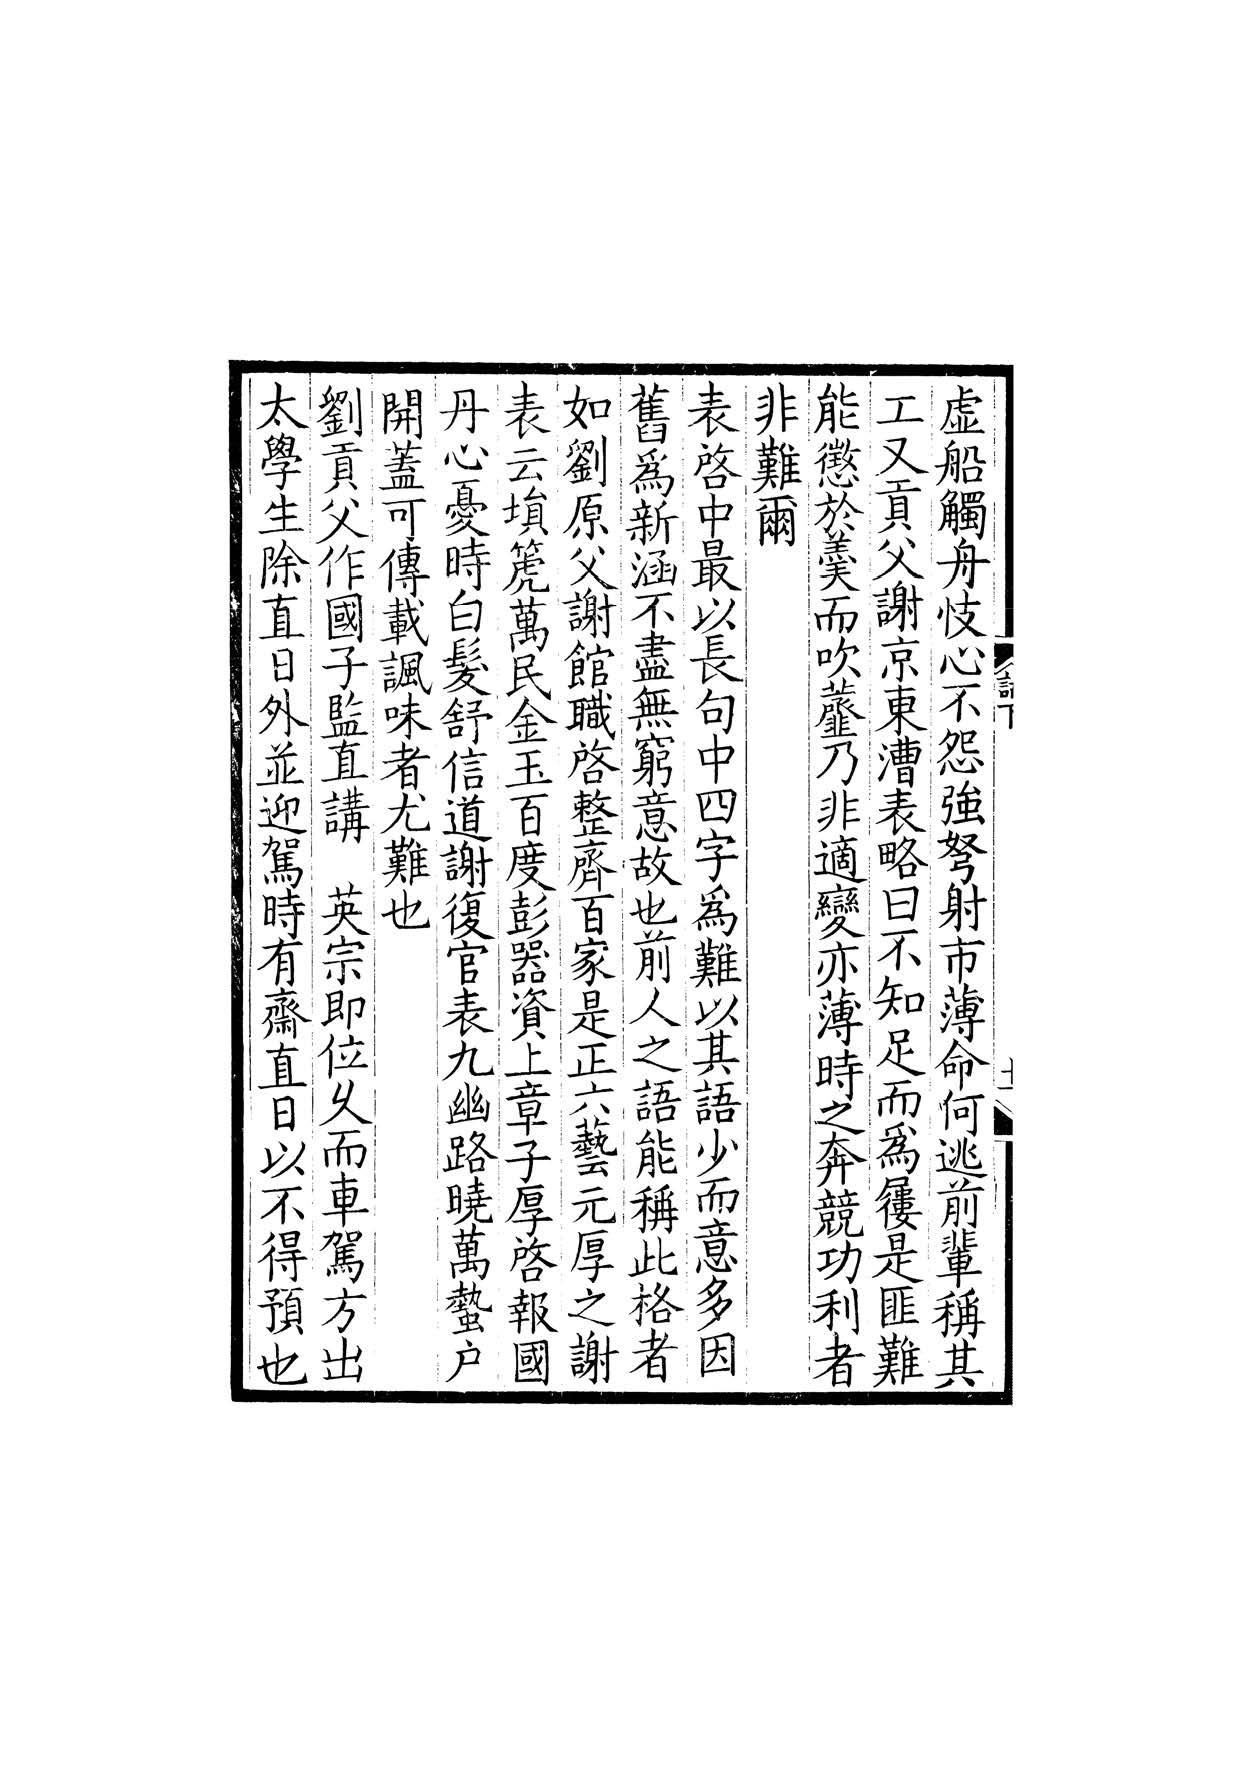 虛船觸舟忮心不怨強弩射市薄命何逃前輩稱其
工又貢父謝京東漕表略曰不知足而爲屨是匪難
能懲於羹而吹虀乃非適變亦薄時之奔競功利者
非難爾
表啓中最以長句中四字爲難以其語少而意多因
舊爲新涵不盡無窮意故也前人之語能稱此格者
如劉原父謝館職啓整齊百家是正六藝元厚之謝
表云塤箎萬民金玉百度彭器資上章子厚啓報國
丹心憂時白髮舒信道謝復官表九幽路曉萬蟄户
開蓋可傳載諷味者尤難也
劉貢父作國子監直講　英宗即位久而車駕方出
太學生除直日外並迎駕時有齋直日以不得預也